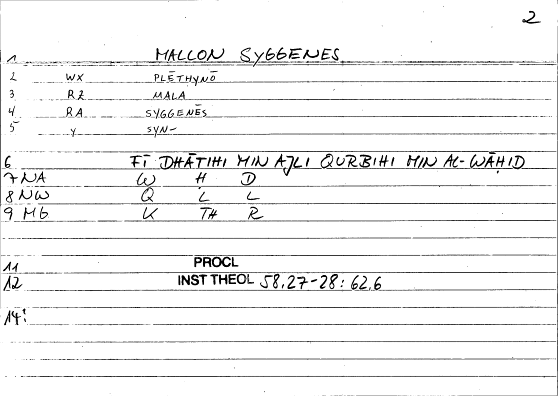 2
1 MALLON SYGGENES
2 WX PLĒTHYNŌ
3 RZ MALA
4 RA SYGGENĒS
5 Y SYN-
6 FĪ DHĀTIHI MIN AJLI QURBIHI MIN AL-WĀḤID
7 NA W Ḥ D
8 NW Q L L
9 Mb K TH R
11 PROCL
12 INST THEOL 58.27-28: 62.6
14: